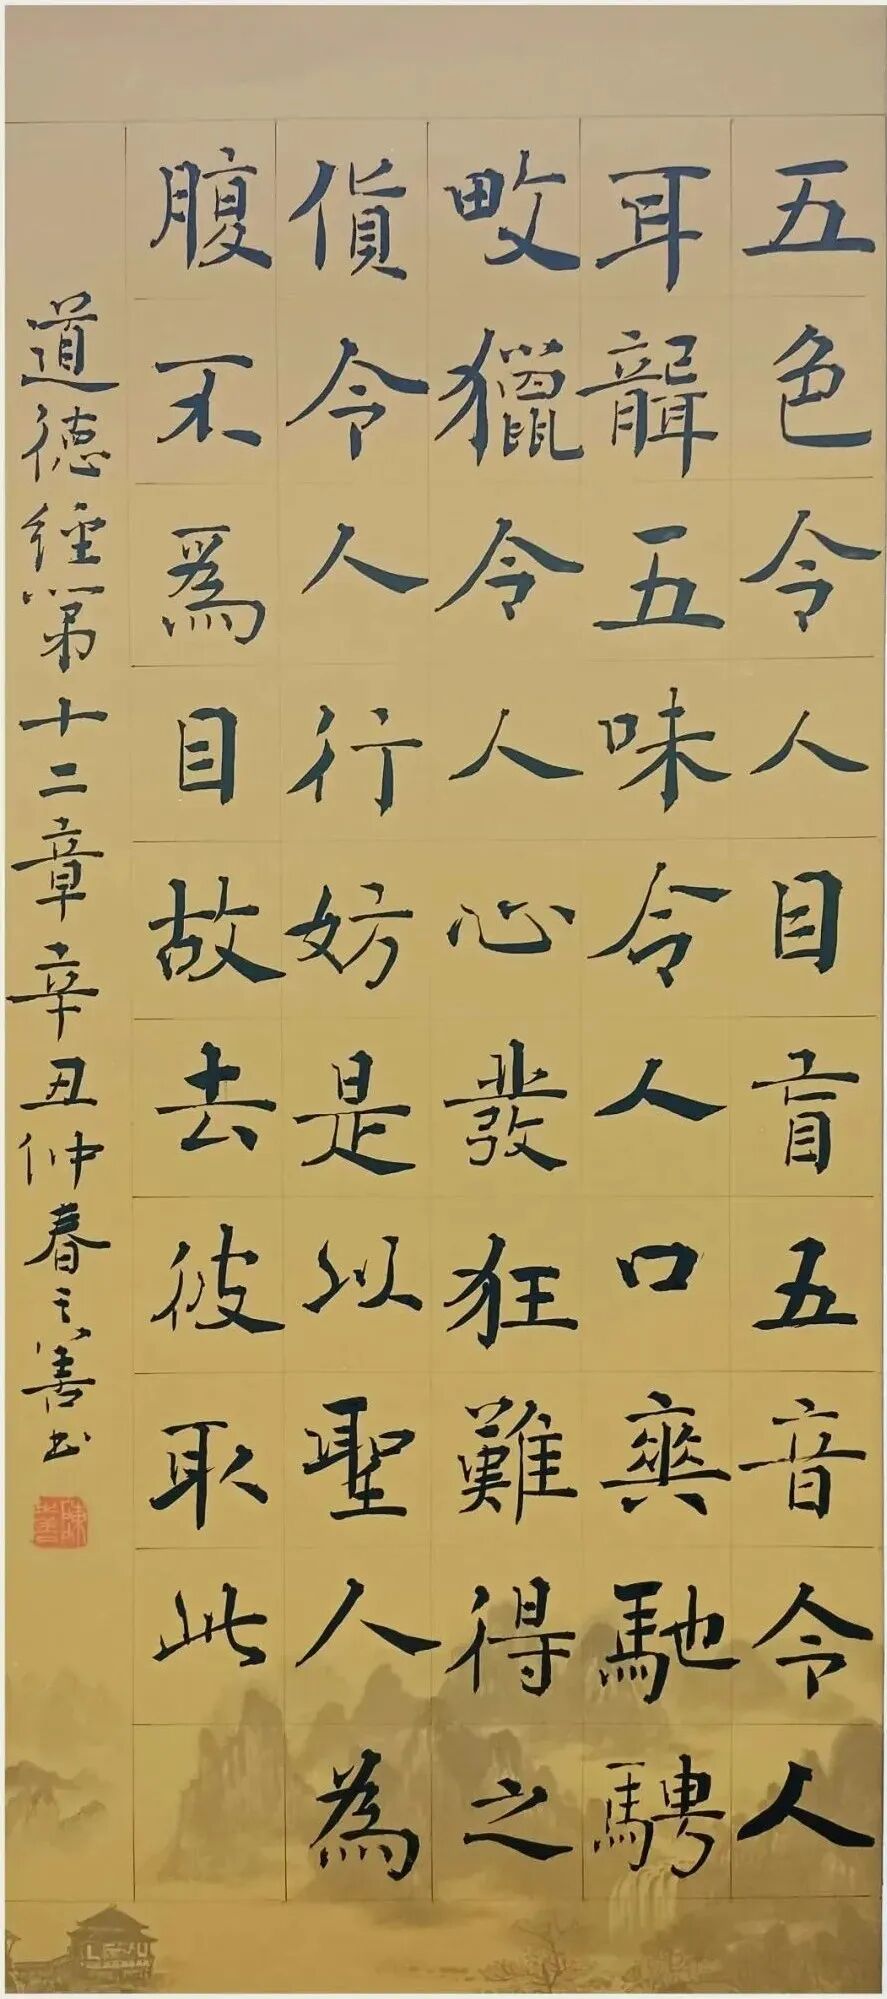 五色令人目盲五音令人
耳聾五味令人口爽馳騁
畋獵令人心發狂難得之
貨令人行妨是以聖人為
腹不為目故去彼取此
道德經第十二章辛丑仲春之善書